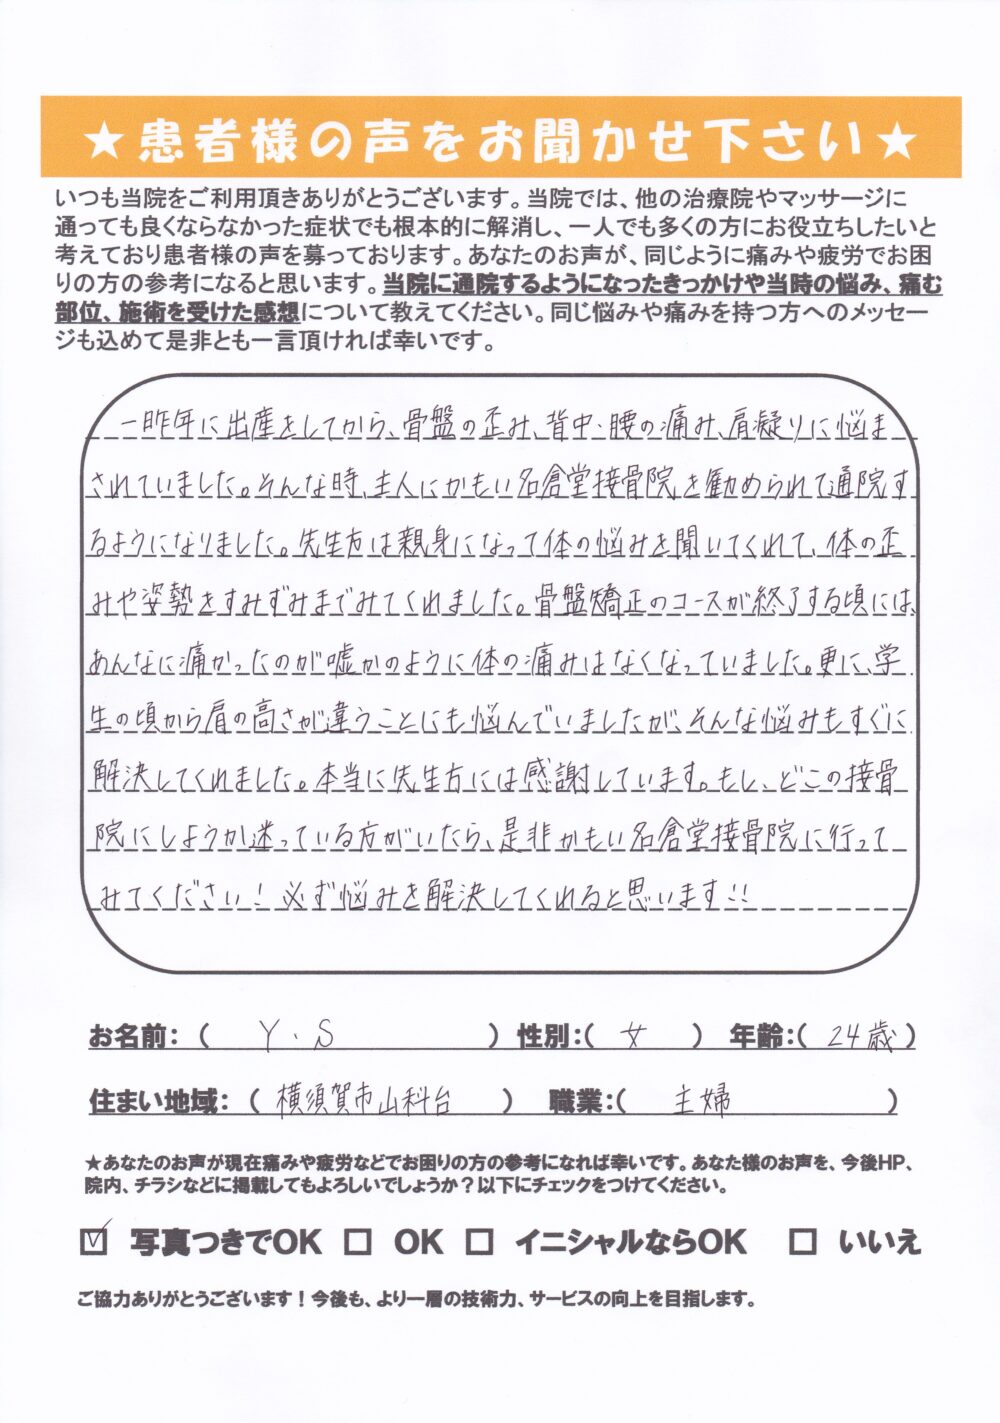 ★患者様の声をお聞かせ下さい★
いつも当院をご利用頂きありがとうございます。当院では、他の治療院やマッサージに
通っても良くならなかった症状でも根本的に解消し、一人でも多くの方にお役立ちしたいと
考えており患者様の声を募っております。あなたのお声が、同じように痛みや疲労でお困
りの方の参考になると思います。当院に通院するようになったきっかけや当時の悩み、痛む
部位、施術を受けた感想について教えてください。同じ悩みや痛みを持つ方へのメッセー
ジも込めて是非とも一言頂ければ幸いです。
一昨年に出産をしてから、骨盤の歪み、背中・腰の痛み、肩凝りに悩ま
されていました。そんな時、主人にかもい名倉堂接骨院を勧められて通院す
るようになりました。先生方は親身になって体の悩みを聞いてくれて、体の歪
みや姿勢をすみずみまでみてくれました。骨盤矯正のコースが終了する頃には、
あんなに痛かったのが嘘かのように体の痛みはなくなっていました。更に、学
生の頃から肩の高さが違うことにも悩んでいましたが、そんな悩みもすぐに
解決してくれました。本当に先生方には感謝しています。もし、どこの接骨
院にしようか迷っている方がいたら、是非かもい名倉堂接骨院に行って
みてください！必ず悩みを解決してくれると思います!!
お名前：（ Y.S ） 性別：（ 女 ） 年齢：（ 24歳 ）
住まい地域：（ 横須賀市山科台 ） 職業：（ 主婦 ）
★あなたのお声が現在痛みや疲労などでお困りの方の参考になれば幸いです。あなた様のお声を、今後HP、
院内、チラシなどに掲載してもよろしいでしょうか？以下にチェックをつけてください。
☑ 写真つきでOK □ OK □ イニシャルならOK □ いいえ
ご協力ありがとうございます！今後も、より一層の技術力、サービスの向上を目指します。